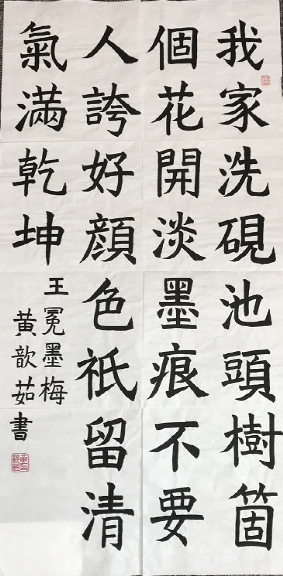 我家洗硯池頭樹箇
個花開淡墨痕不要
人誇好顔色祇留清
氣滿乾坤
王冕墨梅
黃歆茹書